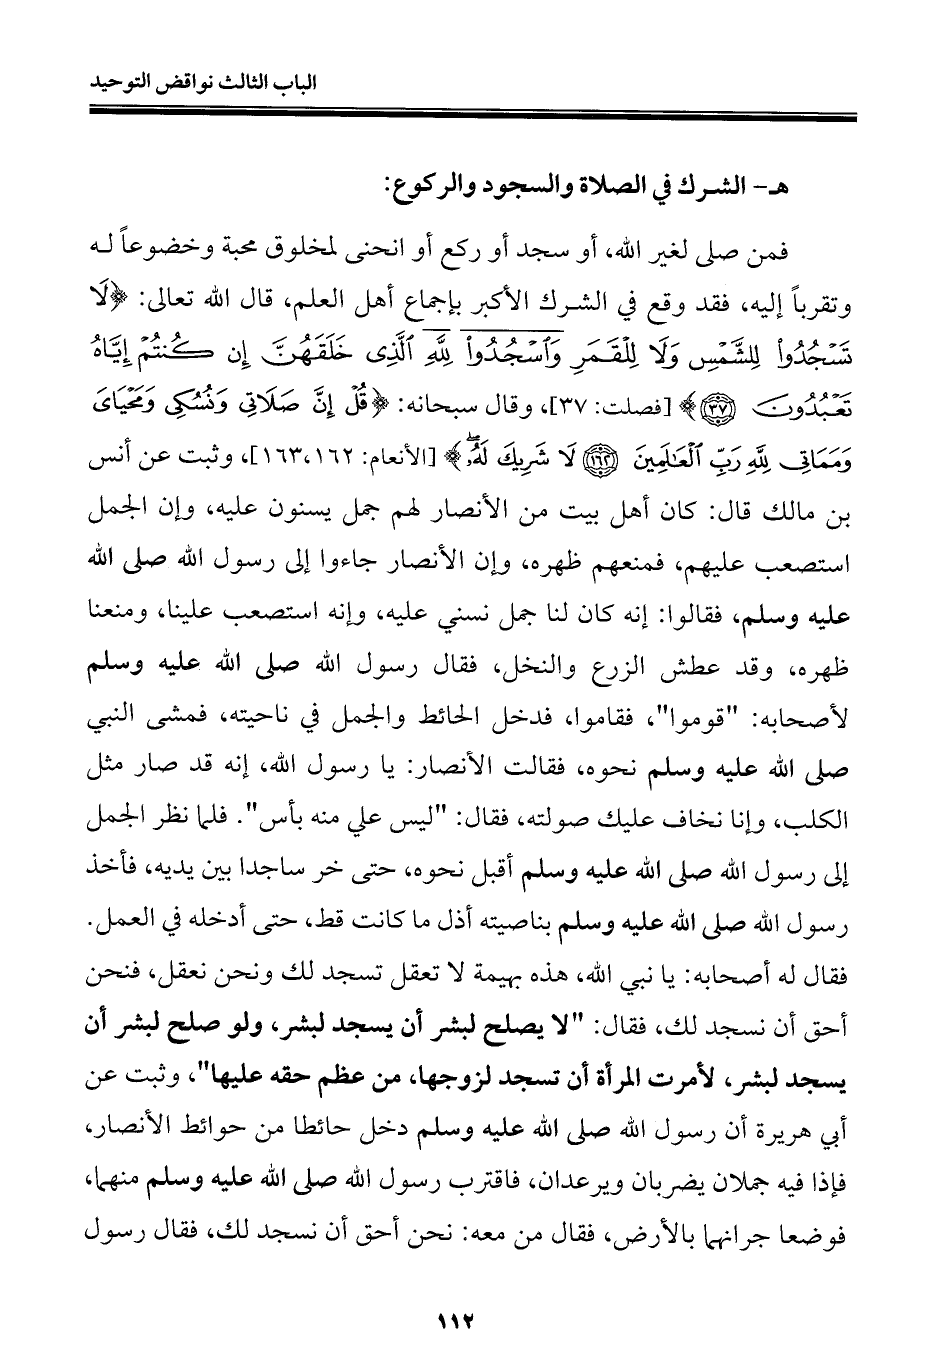 الباب الثالث نواقض التوحيد
هـ- الشرك في الصلاة والسجود والركوع:
فمن صلى لغير الله، أو سجد أو ركع أو انحنى لمخلوق محبة وخضوعاً له
وتقرباً إليه، فقد وقع في الشرك الأكبر بإجماع أهل العلم، قال الله تعالى: ﴿لَا
تَسْجُدُوا۟ لِلشَّمْسِ وَلَا لِلْقَمَرِ وَٱسْجُدُوا۟ لِلَّهِ ٱلَّذِى خَلَقَهُنَّ إِن كُنتُمْ إِيَّاهُ
تَعْبُدُونَ ٣٧﴾ [فصلت: ٣٧]، وقال سبحانه: ﴿قُلْ إِنَّ صَلَاتِى وَنُسُكِى وَمَحْيَاىَ
وَمَمَاتِى لِلَّهِ رَبِّ ٱلْعَالَمِينَ ١٦٢ لَا شَرِيكَ لَهُۥ﴾ [الأنعام: ١٦٣،١٦٢]، وثبت عن أنس
بن مالك قال: كان أهل بيت من الأنصار لهم جمل يسنون عليه، وإن الجمل
استصعب عليهم، فمنعهم ظهره، وإن الأنصار جاءوا إلى رسول الله صلى الله
عليه وسلم، فقالوا: إنه كان لنا جمل نسني عليه، وإنه استصعب علينا، ومنعنا
ظهره، وقد عطش الزرع والنخل، فقال رسول الله صلى الله عليه وسلم
لأصحابه: "قوموا"، فقاموا، فدخل الحائط والجمل في ناحيته، فمشى النبي
صلى الله عليه وسلم نحوه، فقالت الأنصار: يا رسول الله، إنه قد صار مثل
الكلب، وإنا نخاف عليك صولته، فقال: "ليس علي منه بأس". فلما نظر الجمل
إلى رسول الله صلى الله عليه وسلم أقبل نحوه، حتى خر ساجدا بين يديه، فأخذ
رسول الله صلى الله عليه وسلم بناصيته أذل ما كانت قط، حتى أدخله في العمل.
فقال له أصحابه: يا نبي الله، هذه بهيمة لا تعقل تسجد لك ونحن نعقل، فنحن
أحق أن نسجد لك، فقال: "لا يصلح لبشر أن يسجد لبشر، ولو صلح لبشر أن
يسجد لبشر، لأمرت المرأة أن تسجد لزوجها، من عظم حقه عليها"، وثبت عن
أبي هريرة أن رسول الله صلى الله عليه وسلم دخل حائطا من حوائط الأنصار،
فإذا فيه جملان يضربان ويرعدان، فاقترب رسول الله صلى الله عليه وسلم منهما،
فوضعا جرانهما بالأرض، فقال من معه: نحن أحق أن نسجد لك، فقال رسول
١١٢